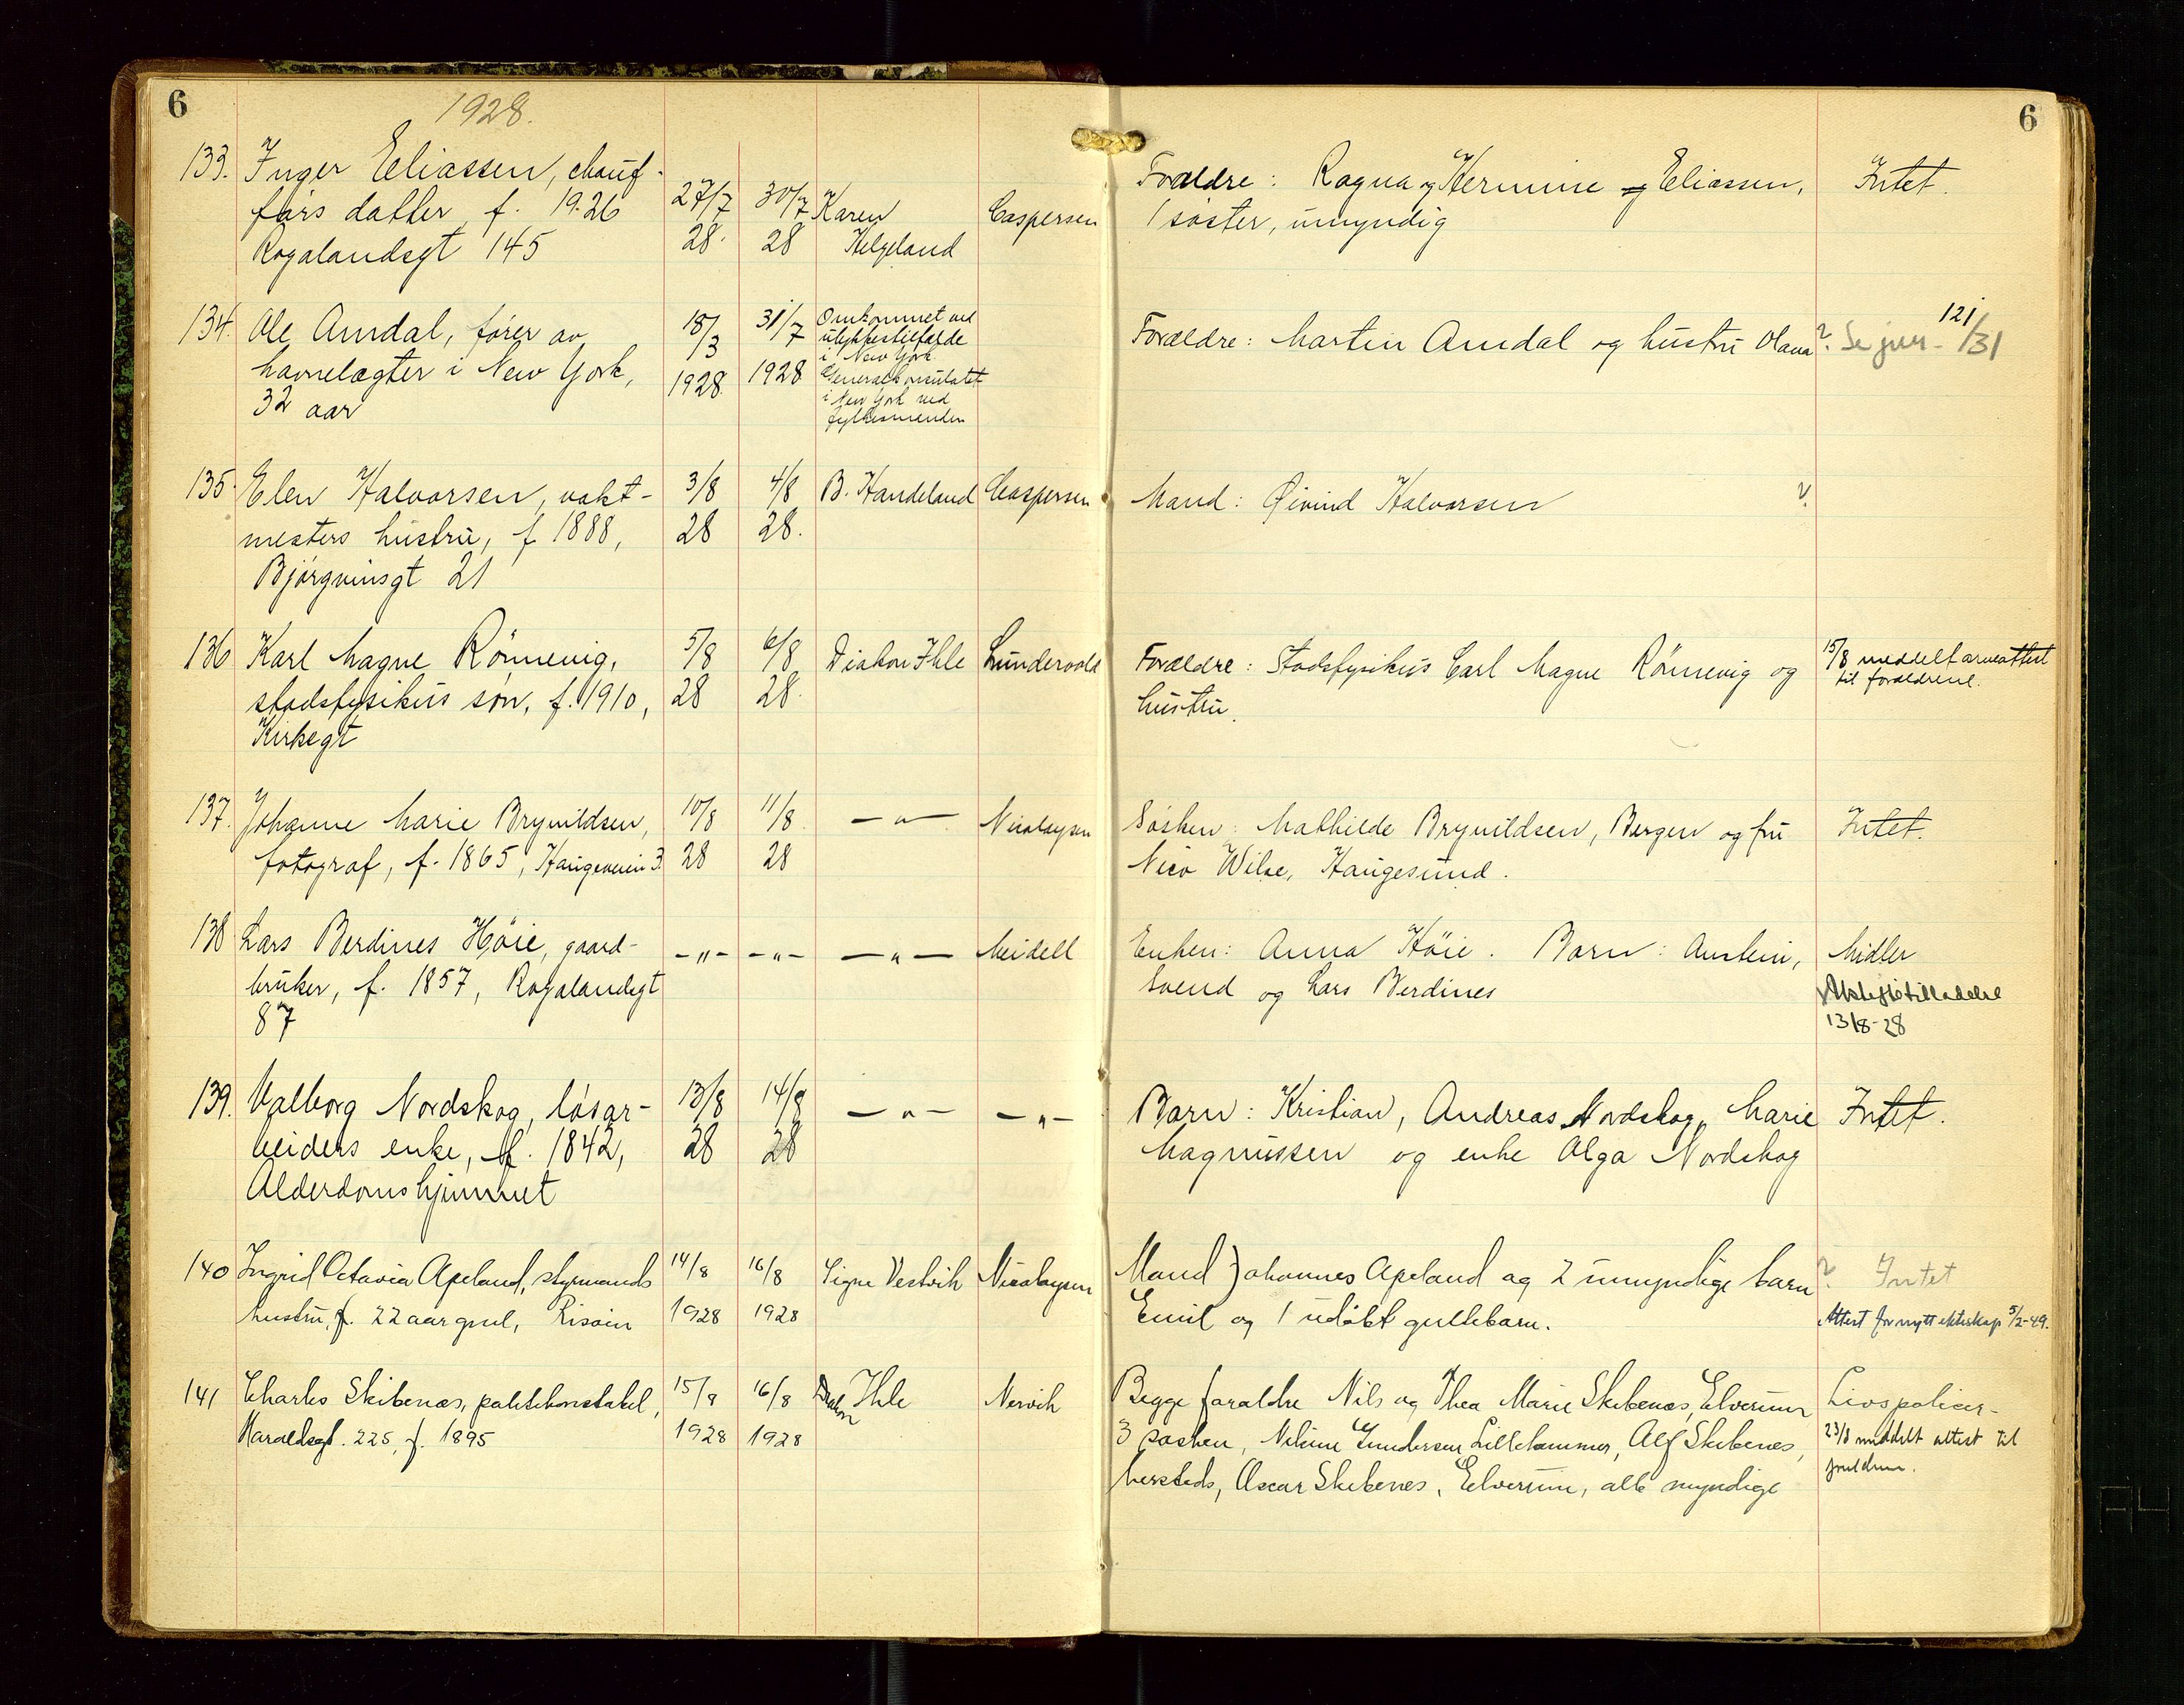 6
1928.
6
133. Inger Eeliassen, chauf-
förs datter f. 1926
Rogalandsgt 145
27/7 28. 30/7 28
Karen
Helgeland
Caspersen
Forældre: Ragna og Hermine Eeliassen,
1 søster, umyndig
Intet.
134. Ole Amdal, fører av
havnelægter i New York,
32 aar
18/3 1928. 31/7 1928
Omkommet ved
ulykkestilfælde
i New York
Generalkonsulatet
i New York ved
fylkesmanden
Forældre: Martin Amdal og hustru Olava
? Se jur. 121/31
135. Elen Halvorsen, vakt-
mesters hustru, f 1888,
Bjørgvinsgt 21
3/8 28 4/8 28.
B. Handeland
Caspersen
Mand: Øivind Halvorsen
?
136 Karl Magne Rönnevig,
stadsfysikus søn, f. 1910,
Kirkegt
5/8 28 6/8 28.
Diakon Ihle
Lundevold
Forældre: Stadsfysikus Carl Magne Rönnevig og
hustru.
15/8 meddelt arveattest
til forældrene.
137. Johanne Marie Brynildsen,
fotograf, f. 1865, Haugeveien 3.
10/8 28 11/8 28
— " —
Nicolaysen
Søsken: Mathilde Brynildsen, Bergen og fru
Nico Wilse, Haugesund.
Intet.
138 Lars Berdines Höie, gaard-
bruker, f. 1857, Rogalandsgt
87
- " - - " - — " —
Meidell
Enken: Anna Höie. Barn: Austein,
Svend og Lars Berdines
Midler
Uskiftetilladelse
13/8-28
139. Valborg Nordskog, løsar-
beiders enke, f. 1842,
Alderdomshjemmet
13/8 28 14/8 28
— " — — " —
Barn: Kristian, Andreas Nordskog, Marie
Magnussen og enke Olga Nordskog
Intet.
140 Ingrid Octavia Apeland, styrmands
hustru, f. 22 aar gml, Risøin
14/8 1928 16/8 1928
Signe Vestvik
Nicolaysen
Mand Johannes Apeland og 2 umyndige barn
Emil og 1 udøbt guttebarn.
? Intet
Attest for nytt ekteskap 5/2-49.
141 Charles Skibenæs, politikonstabel,
Haraldsgt. 225, f. 1895
15/8 1928 16/8 1928
Diakon Ihle
Nervik
Begge forældre Nils og Thea Marie Skibenæs, Elverum
3 søsken, Gundersen Lillehammer, Alf Skibenes,
hersteds, Oscar Skibenes, Elverum, alle myndige
Livspolicer-
23/8 meddelt attest til